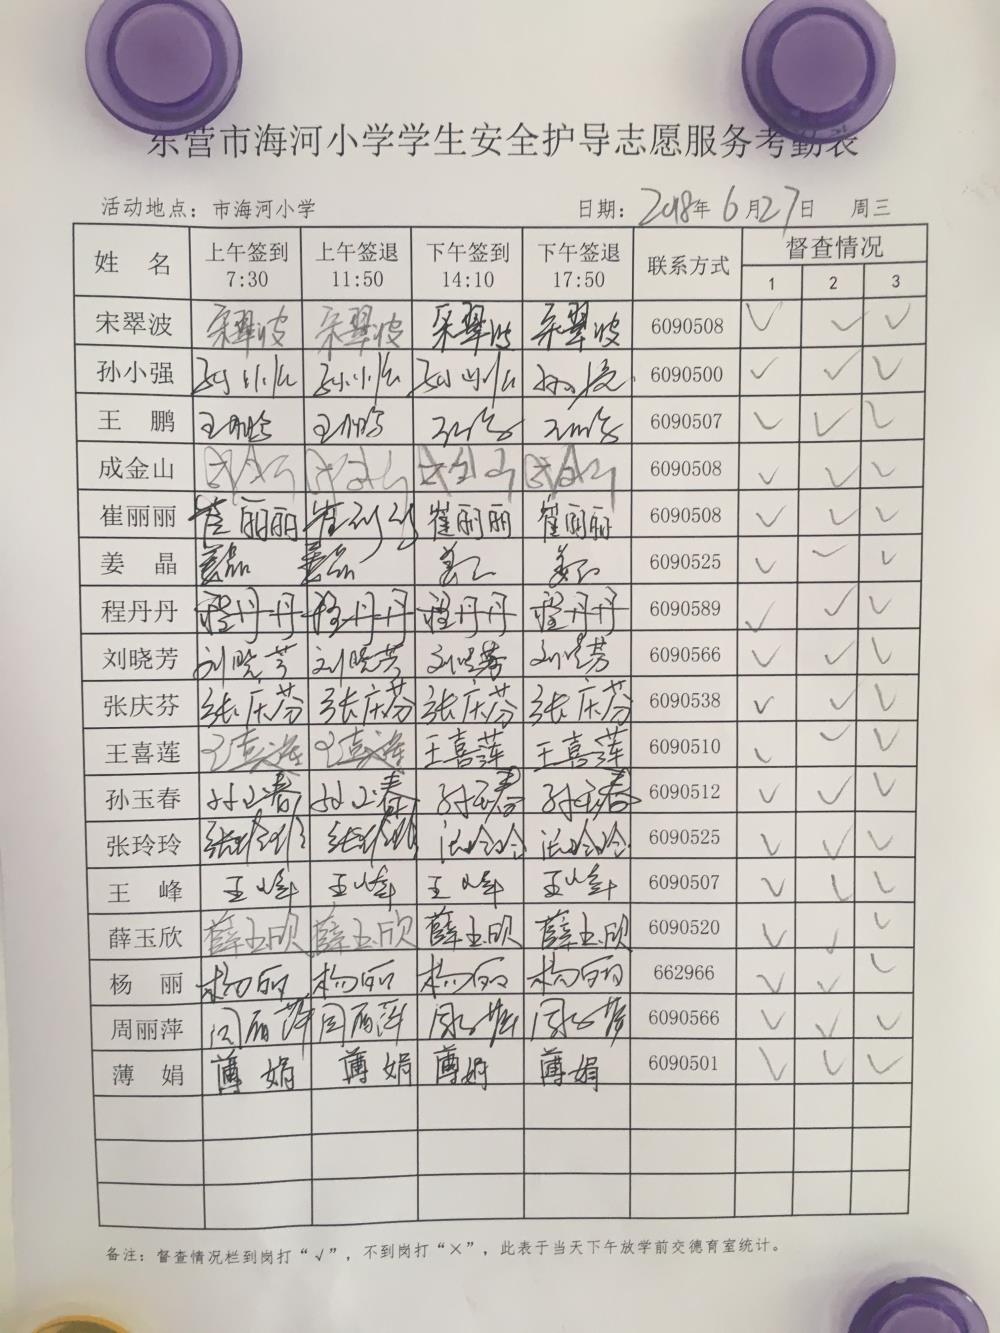 东营市海河小学学生安全护导志愿服务考勤表
活动地点：市海河小学 日期：2018年6月27日 周三
姓 名 上午签到 7:30 上午签退 11:50 下午签到 14:10 下午签退 17:50 联系方式 督查情况 1 2 3
宋翠波 宋翠波 宋翠波 宋翠波 宋翠波 6090508 √ √ √
孙小强 6090500 √ √ √
王 鹏 6090507 √ √ √
成金山 成金山 成金山 成金山 成金山 6090508 √ √ √
崔丽丽 崔丽丽 崔丽丽 崔丽丽 崔丽丽 6090508 √ √ √
姜 晶 6090525 √ √ √
程丹丹 程丹丹 程丹丹 程丹丹 程丹丹 6090589 √ √ √
刘晓芳 刘晓芳 刘晓芳 刘晓芳 刘晓芳 6090566 √ √ √
张庆芬 张庆芬 张庆芬 张庆芬 张庆芬 6090538 √ √ √
王喜莲 王喜莲 王喜莲 王喜莲 王喜莲 6090510 √ √ √
孙玉春 孙玉春 孙玉春 孙玉春 孙玉春 6090512 √ √ √
张玲玲 张玲玲 张玲玲 张玲玲 张玲玲 6090525 √ √ √
王 峰 王峰 王峰 王峰 王峰 6090507 √ √ √
薛玉欣 薛玉欣 薛玉欣 薛玉欣 薛玉欣 6090520 √ √ √
杨 丽 杨丽 杨丽 杨丽 杨丽 662966 √ √ √
周丽萍 周丽萍 周丽萍 周丽萍 周丽萍 6090566 √ √ √
薄 娟 薄娟 薄娟 薄娟 薄娟 6090501 √ √ √
备注：督查情况栏到岗打“√”，不到岗打“×”，此表于当天下午放学前交德育室统计。